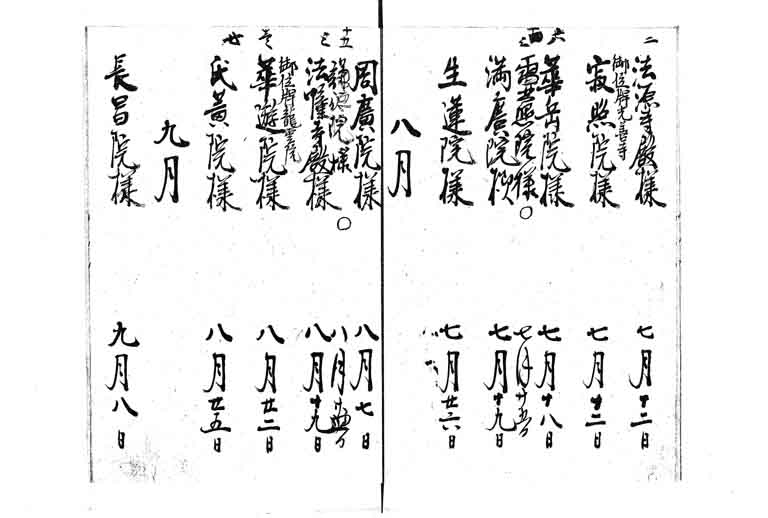 二 法源寺殿様 七月十二日
御位牌光善寺
寂照院様 七月十二日
六 華岳院様 七月十八日
霊 院様〇 七月廿五日
満広院様 七月十九日
生蓮院様 七月廿六日
八月
周廣院様 八月七日
十五 謙徳院様〇 八月
三 法幢寺殿様 八月十九日
御位牌龍雲院
華遊院様 八月廿二日
廿 氏黄院様 八月廿五日
九月
長昌院様 九月八日